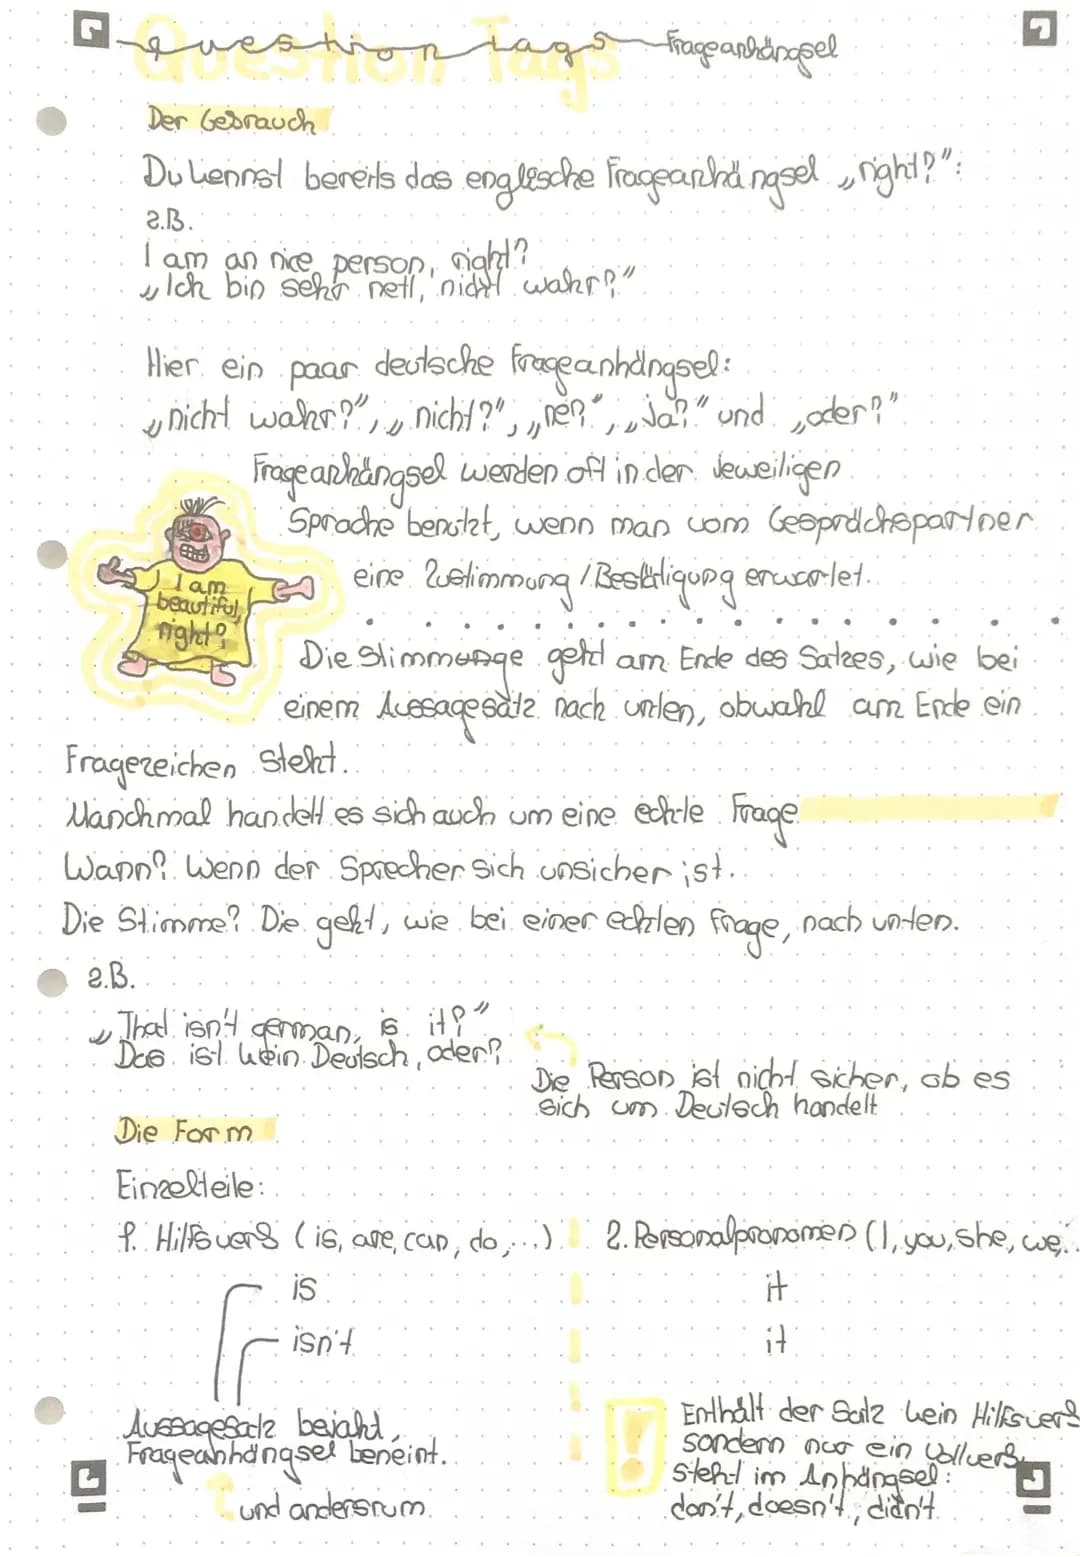 question tags Frageanhängsel
Question Tags
Der Gebrauch
Du kennst bereits das englische Frageanhängsel „right?":
z.B.
I am an nice person, right?
„Ich bin sehr nett, nicht wahr?"
Hier ein paar deutsche Frageanhängsel:
„nicht wahr?", „nicht?", „ne?", „Ja?" und „oder?"
Frageanhängsel werden oft in der Jeweiligen
Sprache benützt, wenn man vom Gesprächspartner
eine Zustimmung / Bestätigung erwartet.
I am
beautiful,
right?
Die Stimmunge geht am Ende des Satzes, wie bei
einem Aussagesatz nach unten, obwahl am Ende ein
Fragezeichen steht.
Manchmal handelt es sich auch um eine echte Frage
Wann? Wenn der Sprecher sich unsicher ist.
Die Stimme? Die geht, wie bei einer echten Frage, nach unten.
z.B.
„That isn't german, is it?"
Das ist kein Deutsch, oder?
Die Person ist nicht sicher, ob es
sich um Deutsch handelt
Die Form
Einzelteile:
1. Hilfsverb (is, are, can, do,...) 2. Personalpronomen (I, you, she, we,..
is it
isn't it
Aussagesatz bejaht,
Frageanhängsel beneint.
und andersrum
! Enthält der Satz kein Hilfsverb
sondern nur ein Vollverb,
steht im Anhängsel:
don't, doesn't, didn't